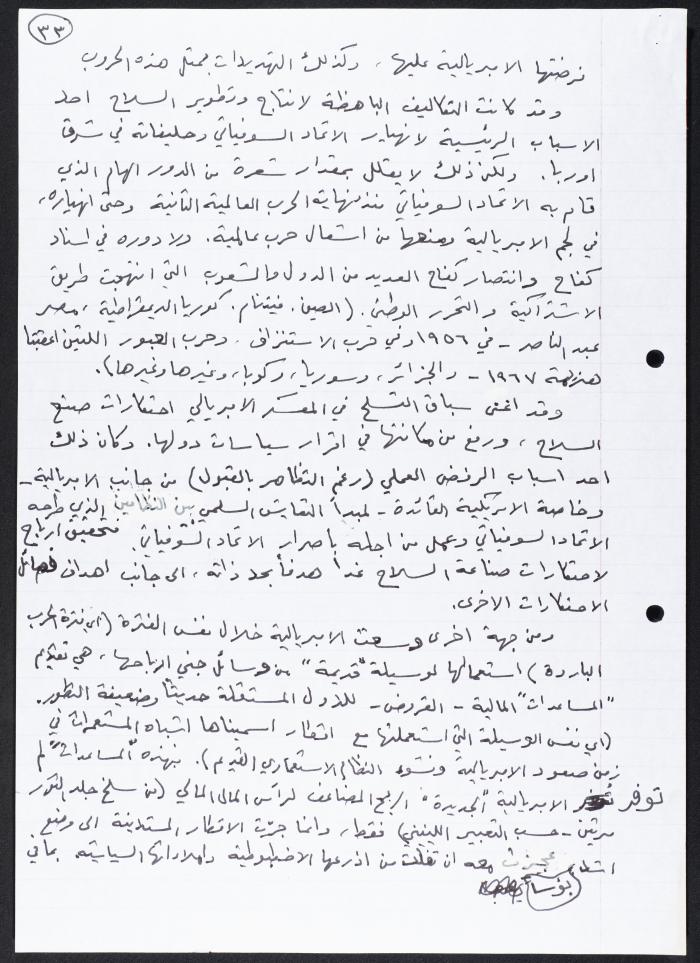 ٣٣
فرضتها الامبريالية عليها، وكذلك التهديدات بمثل هذه الحروب
وقد كانت التكاليف الباهظة لانتاج وتطوير السلاح احد
الاسباب الرئيسية لانهيار الاتحاد السوفياتي وحليفاته في شرق
اوربا. ولكن ذلك لا يقلل بمقدار شعرة من الدور الهام الذي
قام به الاتحاد السوفياتي منذ نهاية الحرب العالمية الثانية وحتى انهياره،
في لجم الامبريالية ومنعها من اشعال حرب عالمية. ولا دوره في اسناد
كفاح وانتصار كفاح العديد من الدول والشعوب التي انتهجت طريق
الاشتراكية والتحرر الوطني. (الصين. فيتنام. كوريا الديمقراطية، مصر
عبد الناصر - في ١٩٥٦ وفي حرب الاستنزاف. وحرب العبور اللتين اعقبتا
هزيمة ١٩٦٧ - والجزائر، وسوريا، وكوبا، وغيرها وغيرها).
وقد اغنى سباق التسلح في المعسكر الامبريالي احتكارات صنع
السلاح، ورفع من مكانتها في اقرار سياسات دولها. وكان ذلك
احد اسباب الرفض العملي (رغم التظاهر بالقبول) من جانب الامبريالية -
وخاصة الامريكية القائدة - لمبدأ التعايش السلمي بين النظامين الذي طرحه
الاتحاد السوفياتي وعمل من اجله باصرار الاتحاد السوفياتي. فتحقيق ارباح
لاحتكارات صناعة السلاح غدا هدفاً بحد ذاته، الى جانب اهداف
الاحتكارات الاخرى.
ومن جهة اخرى وسعت الامبريالية خلال نفس الفترة (اي فترة الحرب
الباردة) استعمالها لوسيلة "قديمة" من وسائل جني ارباحها، هي تقديم
"المساعدات" المالية - القروض - للدول المستقلة حديثاً وضعيفة التطور.
(اي نفس الوسيلة التي استعملتها مع اقطار اسميناها اشباه المستعمرات في
زمن صعود الامبريالية ونشوء النظام الاستعماري القديم). فهذه "المساعدات" لم
توفر الامبريالية "الجديدة" الربح المضاعف لرأس المال المالي (من سلخ جلد الثور
مرتين - حسب التعبير اللينيني) فقط، وانما جرّت الاقطار المستدينة الى وضع
عجزت معه ان تفلت من اذرعها الاخطبوطية واملاءاتها السياسية بما في